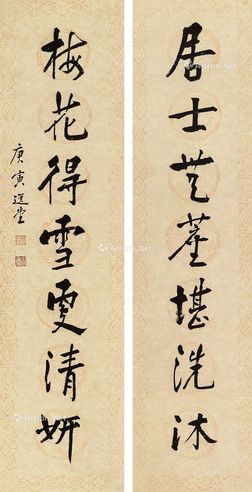 居士無塵堪洗沐
梅花得雪更清妍
庚寅選堂